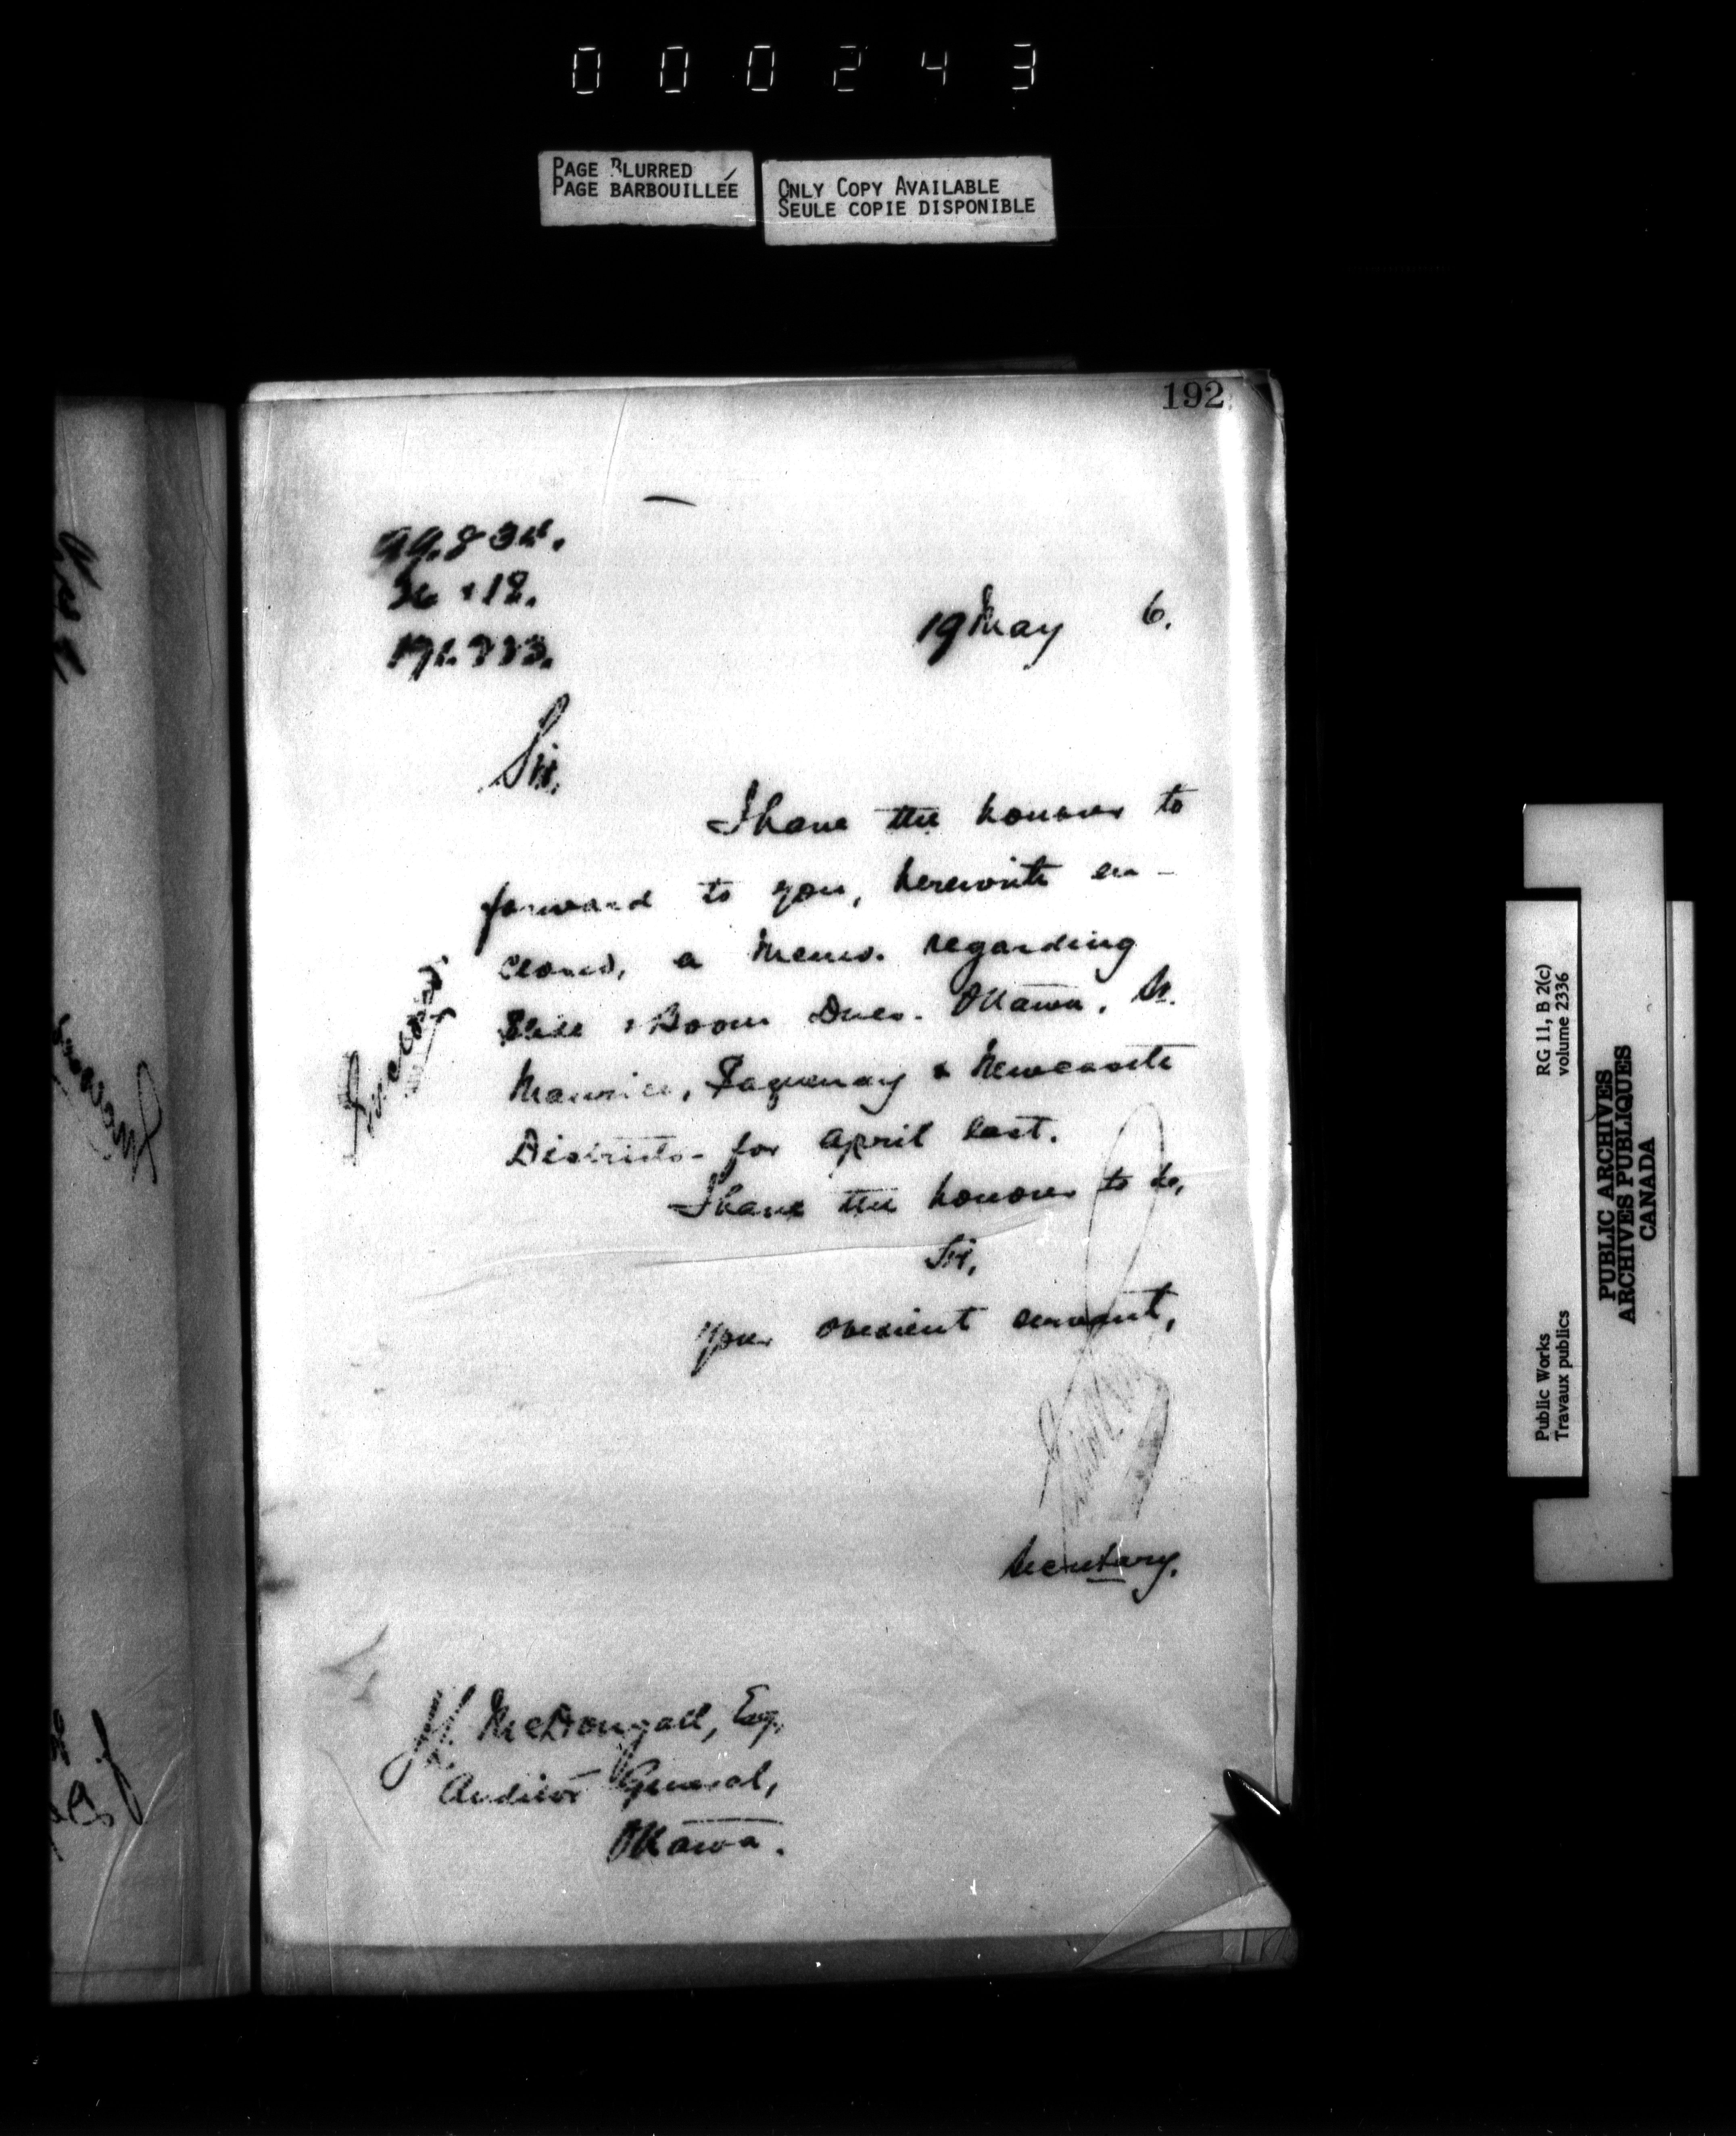 000243
PAGE BLURRED
PAGE BARBOUILLÉE
ONLY COPY AVAILABLE
SEULE COPIE DISPONIBLE
192
19 May 6.
Sir,
I have the honour to
forward to you, herewith en-
closed, a Memo. regarding
Slide & Boom Dues. Ottawa, St.
Maurice, Saguenay & Newcastle
Districts. for April last.
I have the honour to be,
Sir,
Your obedient servant,
Secretary.
J. L. McDougall, Esq.
Auditor General,
Ottawa.
RG 11, B 2(c)
volume 2336
Public Works
Travaux publics
PUBLIC ARCHIVES
ARCHIVES PUBLIQUES
CANADA